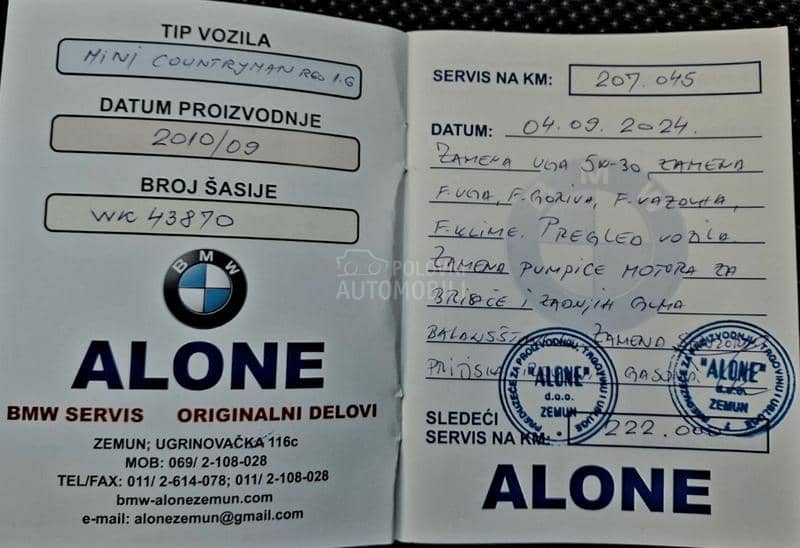 TIP VOZILA
MINI COUNTRYMAN R60 1.6
DATUM PROIZVODNJE
2010/09
BROJ ŠASIJE
WK 43870
BMW
ALONE
BMW SERVIS ORIGINALNI DELOVI
ZEMUN; UGRINOVAČKA 116c
MOB: 069/ 2-108-028
TEL/FAX: 011/ 2-614-078; 011/ 2-108-028
bmw-alonezemun.com
e-mail: alonezemun@gmail.com
POLOVNI
AUTOMOBILI
SERVIS NA KM: 207.045
DATUM: 04.09.2024.
ZAMENA ULJA 5W-30, ZAMENA
F.ULJA, F.GORIVA, F.VAZDUHA,
F.KLIME. PREGLED VOZILA.
ZAMENA PUMPICE MOTORA ZA
BRISAČE I ZADNJIH GUMA
ZAMENA
SLEDEĆI
SERVIS NA KM: 222.000
PREDUZEĆE ZA PROIZVODNJU, TRGOVINU I USLUGE
"ALONE"
d.o.o.
ZEMUN
PREDUZEĆE ZA PROIZVODNJU, TRGOVINU I USLUGE
"ALONE"
d.o.o.
ZEMUN
ALONE